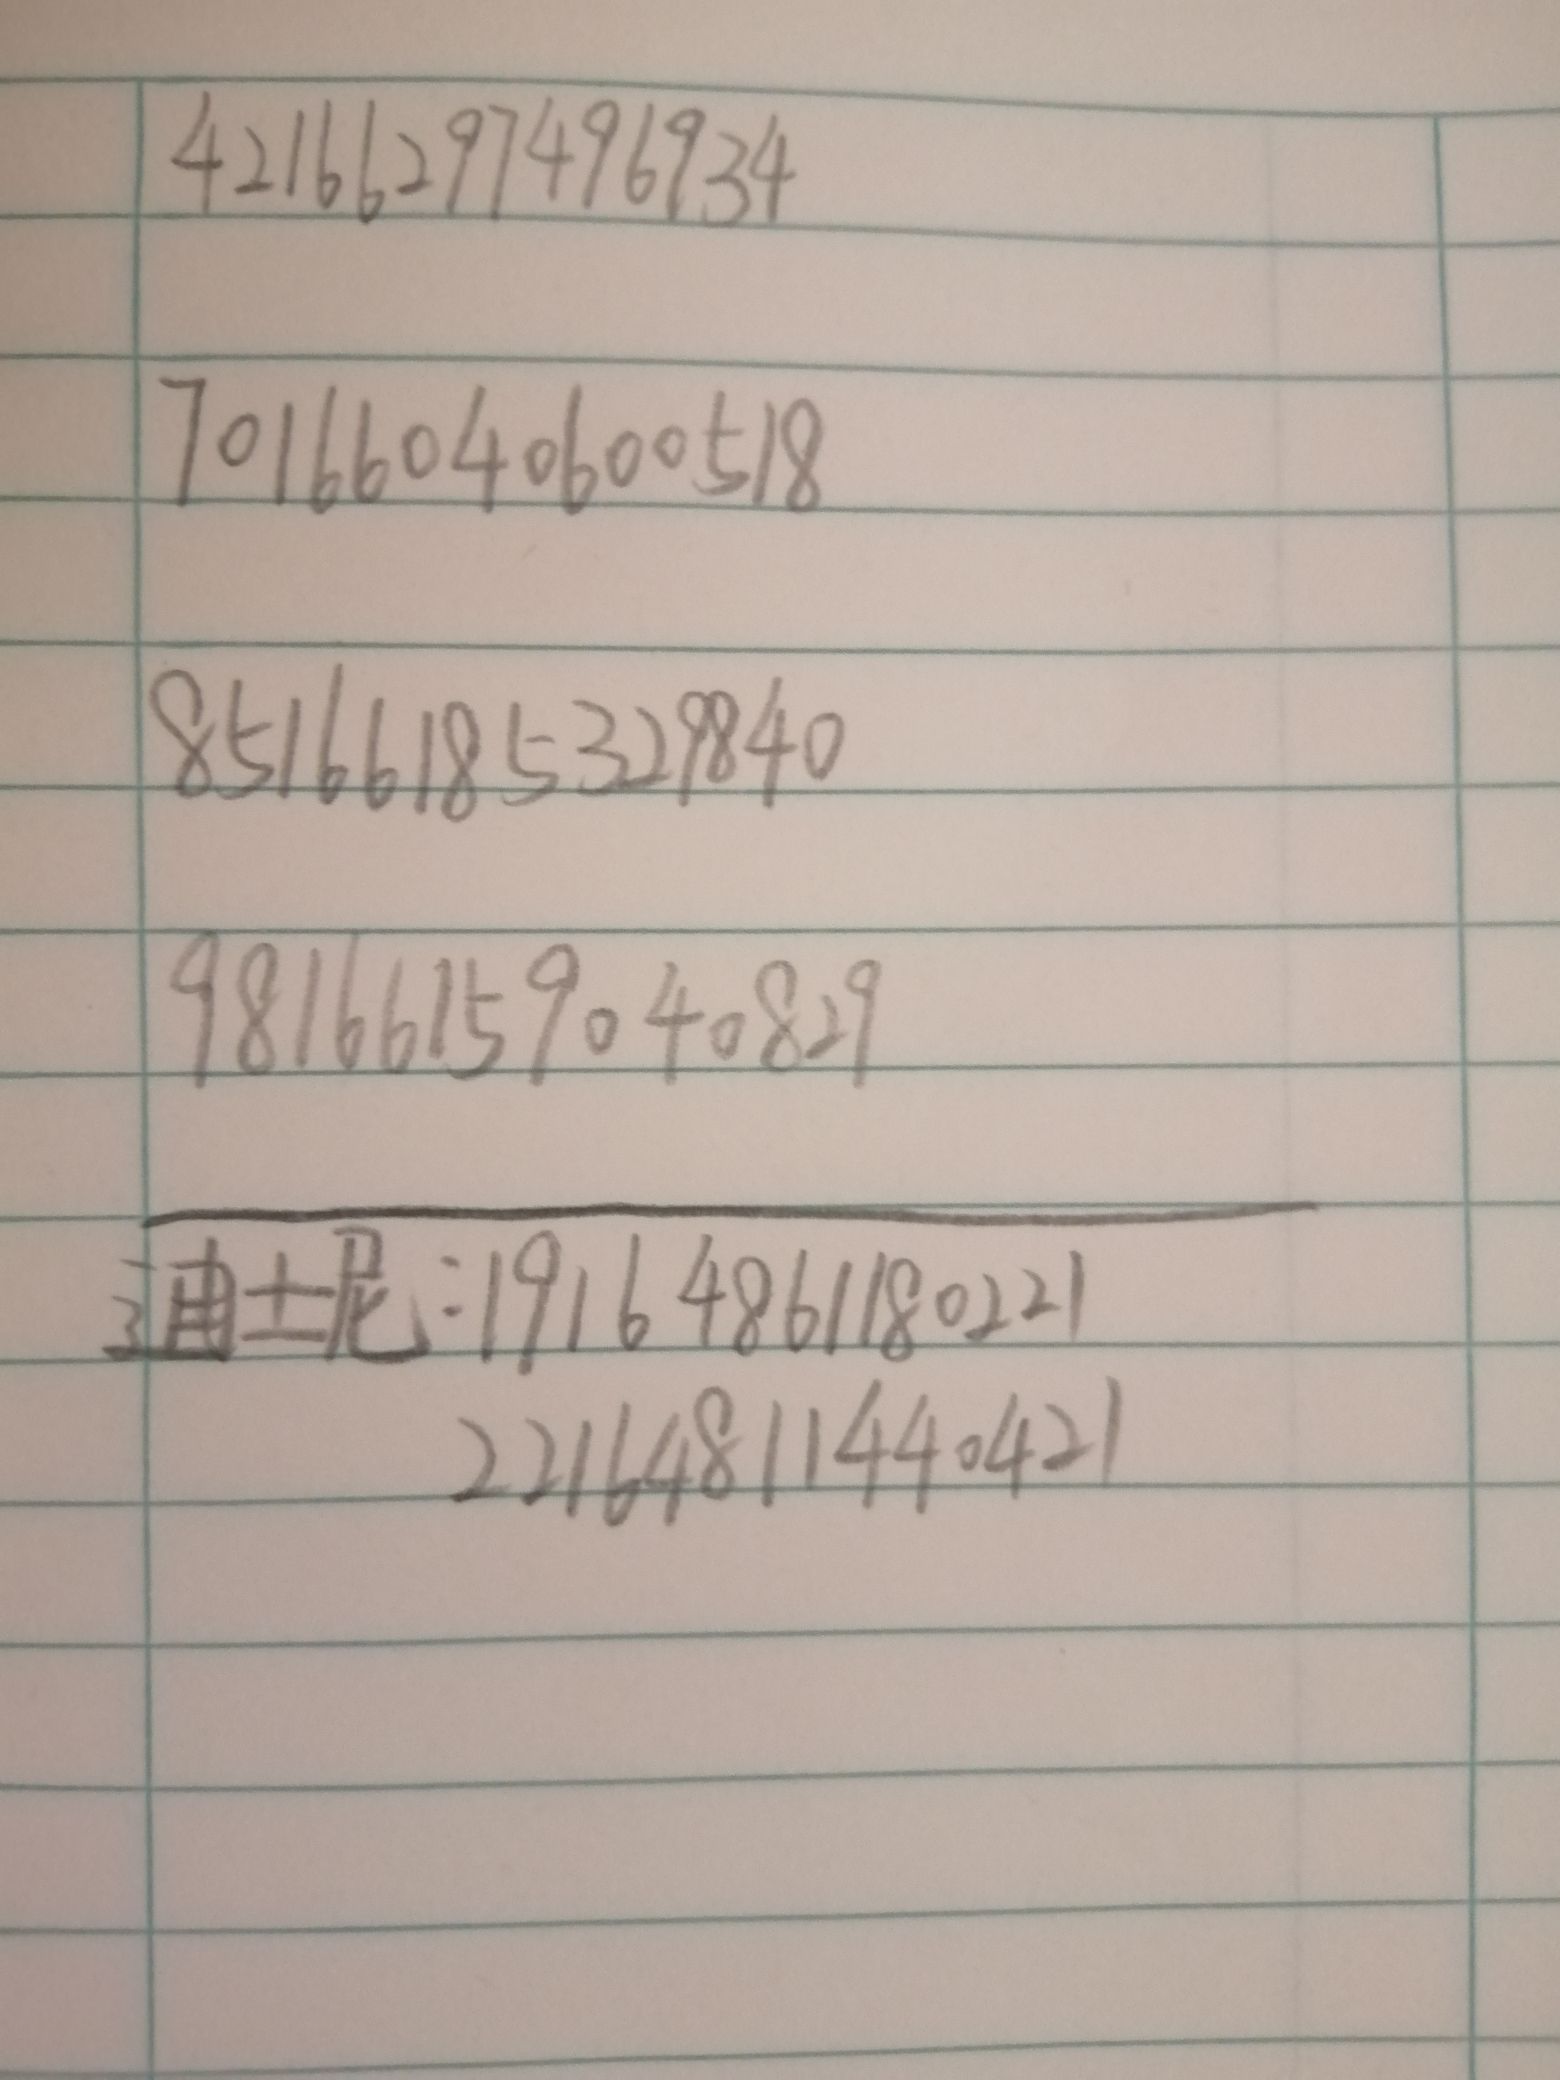 42166297496934
70166040600518
85166185329840
98166159040829
迪士尼:19164861180221
22164811440421